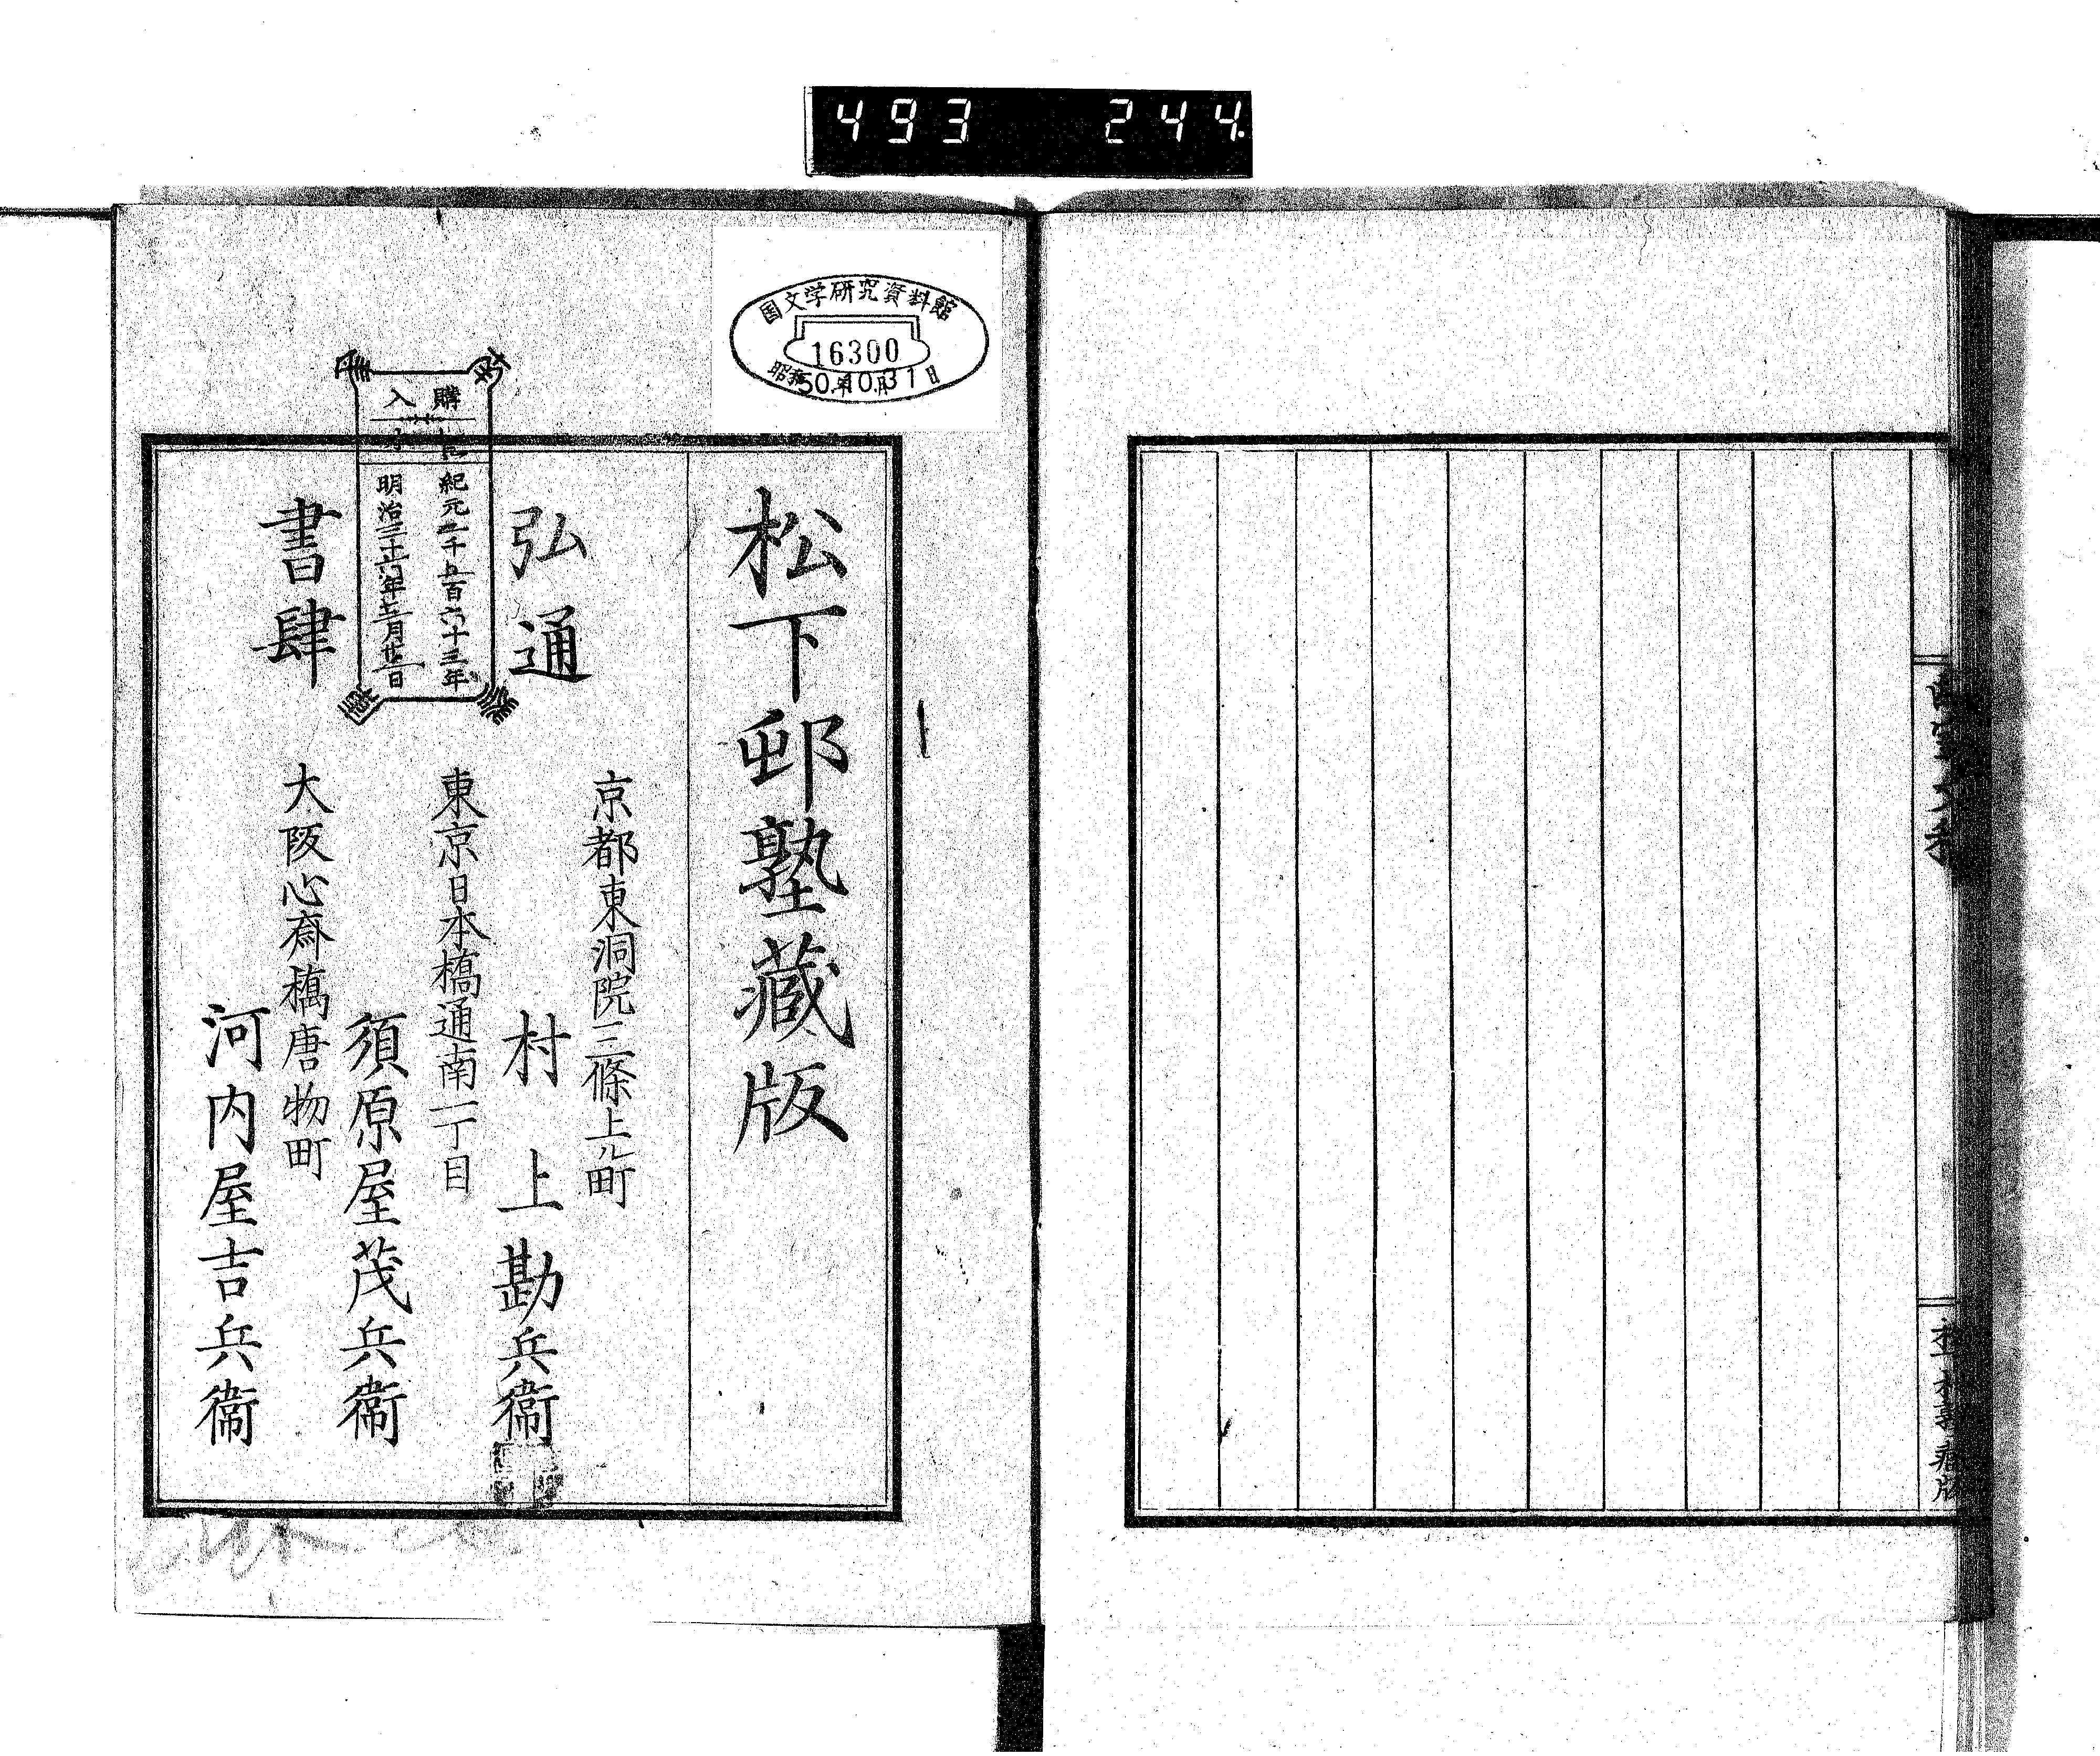 493 244
国文学研究資料館
16300
昭和50年10月31日
購入
紀元二千五百六十三年
明治三十六年
松下邨塾藏版
弘通
書肆
京都東洞院三條上ル町
村上勘兵衞
東京日本橋通南一丁目
須原屋茂兵衞
大阪心齋橋唐物町
河内屋吉兵衞